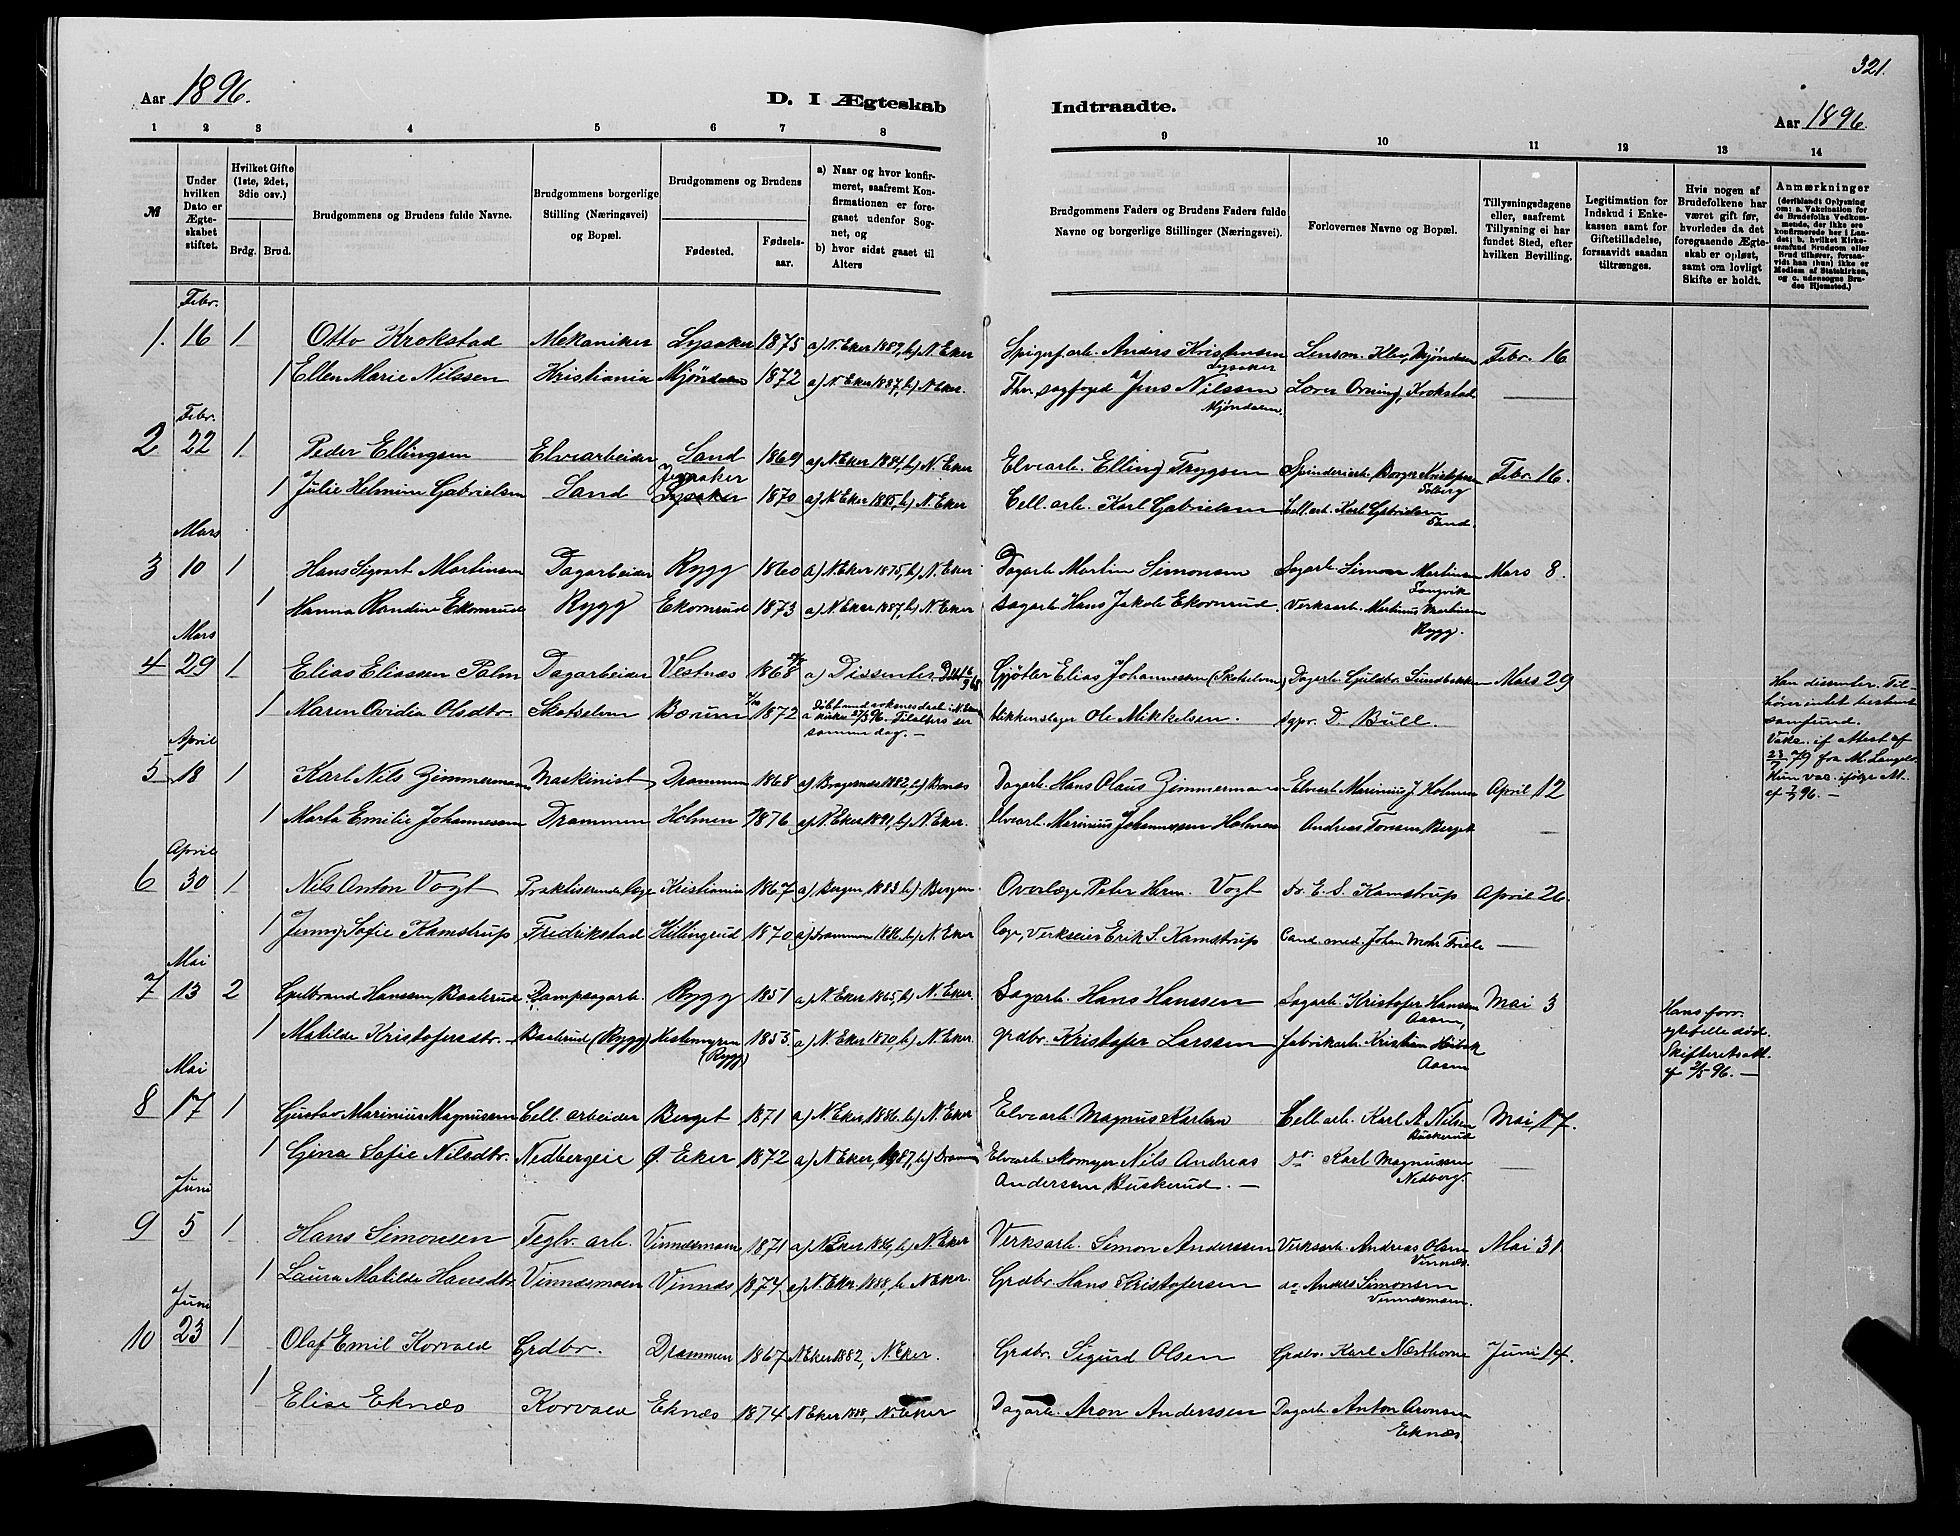 321.
Aar 1896.
D. I Ægteskab
Indtraadte.
Aar 1896.
1 2 3 4 5 6 7 8 9 10 11 12 13 14
№
Under hvilken Dato er Ægteskabet stiftet.
Hvilket Gifte (1ste, 2det, 3die osv.)
Brdg. Brud.
Brudgommens og Brudens fulde Navne.
Brudgommens borgerlige Stilling (Næringsvei) og Bopæl.
Brudgommens og Brudens
Fødested.
Fødselsaar.
a) Naar og hvor konfirmeret, saafremt Konfirmationen er foregaaet udenfor Sognet, og
b) hvor sidst gaaet til Alters
Brudgommens Faders og Brudens Faders fulde Navne og borgerlige Stillinger (Næringsvei).
Forlovernes Navne og Bopæl.
Tillysningsdagene eller, saafremt Tillysning ei har fundet Sted, efter hvilken Bevilling.
Legitimation for Indskud i Enkekassen samt for Giftetilladelse, forsaavidt saadan tiltrænges.
Hvis nogen af Brudefolkene har været gift før, hvorledes da det foregaaende Ægteskab er opløst, samt om lovligt Skifte er holdt.
Anmærkninger
(deriblandt Oplysning om: a. Vakcination for de Brudefolks Vedkommende, der ikke ere konfirmerede her i Landet; b. hvilket Kirkesamfund Brudgom eller Brud tilhører, forsaavidt han (hun) ikke er Medlem af Statskirken, og c. udensogns Brudes Hjemsted.)
Febr.
1. 16 1 Otto Krokstad Mekaniker Lysaker 1875 a) N. Eker 1889, b) N. Eker Spigerf. arb. Anders Kristensen Lysaker Lensm. Klev, Mjøndalen Febr. 16
1 Ellen Marie Nilssen Kristiania Mjöndalen 1872 a) N. Eker 1887, b) N. Eker. Thv. sagfoged Jens Nilssen Mjöndalen. Lærer Orning, Krokstad —
Febr.
2 22 1 Peder Ellingsen Elvearbeider Sand 1869 a) N. Eker 1884, b) N. Eker Elvearb. Elling Tryggsen Spinderiarb. Borger Kristofersen Solberg Febr. 16.
1 Julie Helmine Gabrielsen Sand Lysaker 1870 a) N. Eker 1885, b) N. Eker Cell. arb. Karl Gabrielsen Cell. arb. Karl Gabrielsen Sand.
Mars
3 10 1 Hans Sigvart Martinsen Dagarbeider Rygg 1860 a) N. Eker 1875, b) N. Eker Dagarb. Martin Simonsen Sagarb. Simon Martinsen Mars 8.
1 Hanna Randine Ekornrud Rygg Ekornrud 1873 a) N. Eker 1887, b) N. Eker Sagarb. Hans Jakob Ekornrud. Verksarb. Martinius Martinsen Rygg.
Mars
4 29 1 Elias Eliassen Palm Dagarbeider Vestnæs 1868 a) Dissenter. Gjøtler Elias Johannessen (Skotselven) Dagarb. Gulbr. Sundbakken Mars 29
1 Maren Ovidia Olsdtr. Skotselven Bærum 1872 blikkenslager Ole Mikkelsen. sgpr. D. Bull.
Han dissenter. Tilhører intet bestemt samfund.
Vakc. if attest af
Hun vac. ifølge At.
af 96. —
April
5 18 1 Karl Nils Zimmermann Maskinist Drammen 1868 a) Bragernes 1882, b) Bragnes Dagarb. Hans Olaus Zimmermann Elvearb. Marinius J. Holmen April 12
1 Marta Emilie Johannessen Drammen Holmen 1876 a) N. Eker 1891, b) N. Eker. Elvearb. Marinius Johannessen Holmen Andreas Torsen Berget —
April
6 30 1 Nils Anton Vogt Praktiserende læge Kristiania 1867 a) Bergen, 1883 b) Bergen. Overlæge Peter Herm. Vogt Dr. E. S. Kamstrup April 26.
1 Jenny Sofie Kamstrup Fredrikstad Killingrud 1870 a) Drammen 1886, b) N. Eker læge, verkseier Erik S. Kamstrup Cand. med. Johan Mohr Friele —
Mai
7 13 2 Gulbrand Hanssen Baalerud Dampsagarb. Rygg 1851 a) N. Eker 1865, b) N. Eker. Sagarb. Hans Hanssen Sagarb. Kristofer Hansen Aasen, Mai 3
1 Matilde Kristofersdtr. Baalerud (Rygg) Hestemyren (Rygg) 1855. a) N. Eker 1870, b) N. Eker. Grdbr. Kristofer Larssen Fabrikarb. Kristian Høibak Aasen
Hans forr. egtefelle død. Skifteretsatt. af 2/5 96. —
Mai
8 17 1 Gustav Marinius Magnussen Cell. arbeider Berget 1871 a) N. Eker, 1886, b) N. Eker Elvearb. Magnus Karlsen Cell. arb. Karl A. Nilsen Buskerud Mai 17.
1 Gina Sofie Nilsdtr. Nedbergeie Ø. Eker 1872 a) N. Eker, 1887, b) Drammen Elvearb. Nils Andreas Anderssen Buskerud. — Do Karl Magnussen Nedberg. —
Juni
9 5 1 Hans Simonsen Teglv. arb. Vinnesmoen 1871 a) N. Eker 1886, b) N. Eker Verksarb. Simon Anderssen Verksarb. Andreas Olsen Vinnæs. Mai 31
1 Laura Matilde Hansdtr. Vinnesmoen Vinnæs 1874. a) N. Eker. 1888, b. N. Eker. Grdbr. Hans Kristofersen do Anders Simonsen Vinnesmoen.
Juni
10 23 1 Olaf Emil Korvald Grdbr. Drammen 1867 N. Eker 1882, N. Eker. Grdbr. Sigurd Olsen Grdbr. Karl Næsthorne Juni 14.
1 Elise Eknæs Korvald Eknæs 1874 N. Eker 1888, N. Eker Dagarb. Aron Anderssen Dagarb. Anton Aronsen Eknæs.